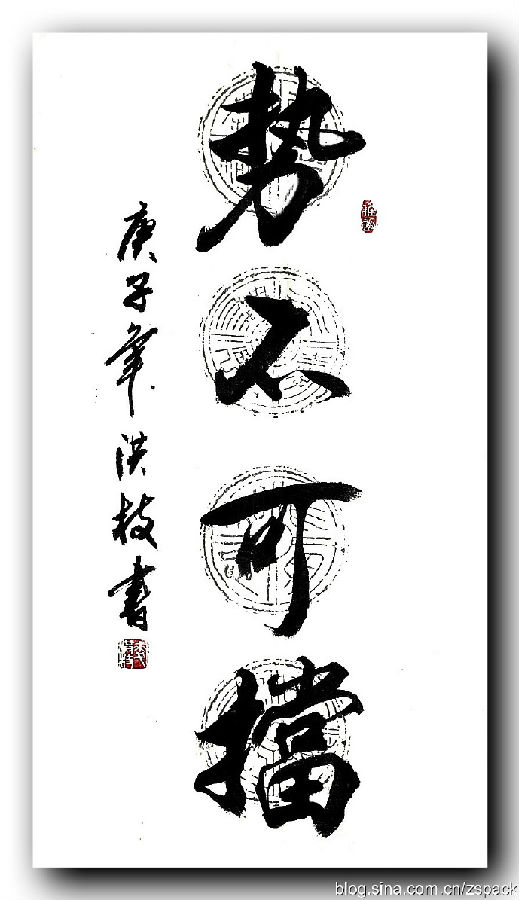 势不可擋
庚子年洪枝書
blog.sina.com.cn/zspack